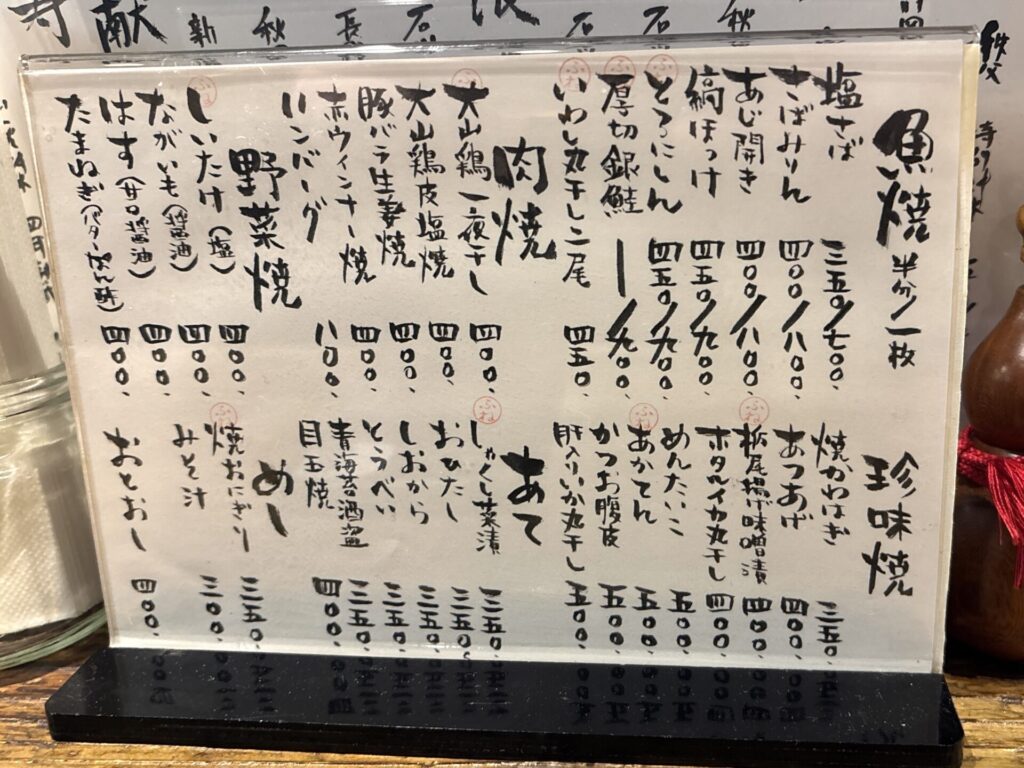 魚焼 半分/一枚
塩さば 三五〇/七〇〇、
さばみりん 四〇〇/八〇〇、
あじ開き 四〇〇/八〇〇、
縞ほっけ 四五〇/九〇〇、
とろにしん 四五〇/九〇〇、
ふね
厚切銀鮭 ー/九〇〇、
ふね
いわし丸干し二尾 四五〇、
ふね
肉焼
大山鶏一夜干し 四〇〇、
ふね
大山鶏皮塩焼 四〇〇、
豚バラ生姜焼 四〇〇、
赤ウィンナー焼 四〇〇、
ハンバーグ 八〇〇、
野菜焼
しいたけ(塩) 四〇〇、
ふね
ながいも(醤油) 四〇〇、
はす(甘口醤油) 四〇〇、
たまねぎ(バターぽん酢) 四〇〇、
珍味焼
焼かわはぎ 三五〇、
あつあげ 四〇〇、
栃尾揚げ味噌漬 四〇〇、
ふね
ホタルイカ丸干し 四〇〇、
めんたいこ 五〇〇、
あかてん 五〇〇、
ふね
かつお腹皮 五〇〇、
肝入りいか丸干し 五〇〇、
あて
しゃくし菜漬 三五〇、
ふね
おひたし 三五〇、
しおから 三五〇、
とうべい 三五〇、
青海苔酒盗 三五〇、
目玉焼 四〇〇、
めし
焼おにぎり 三五〇、
ふね
みそ汁 三〇〇、
おとおし 四〇〇、